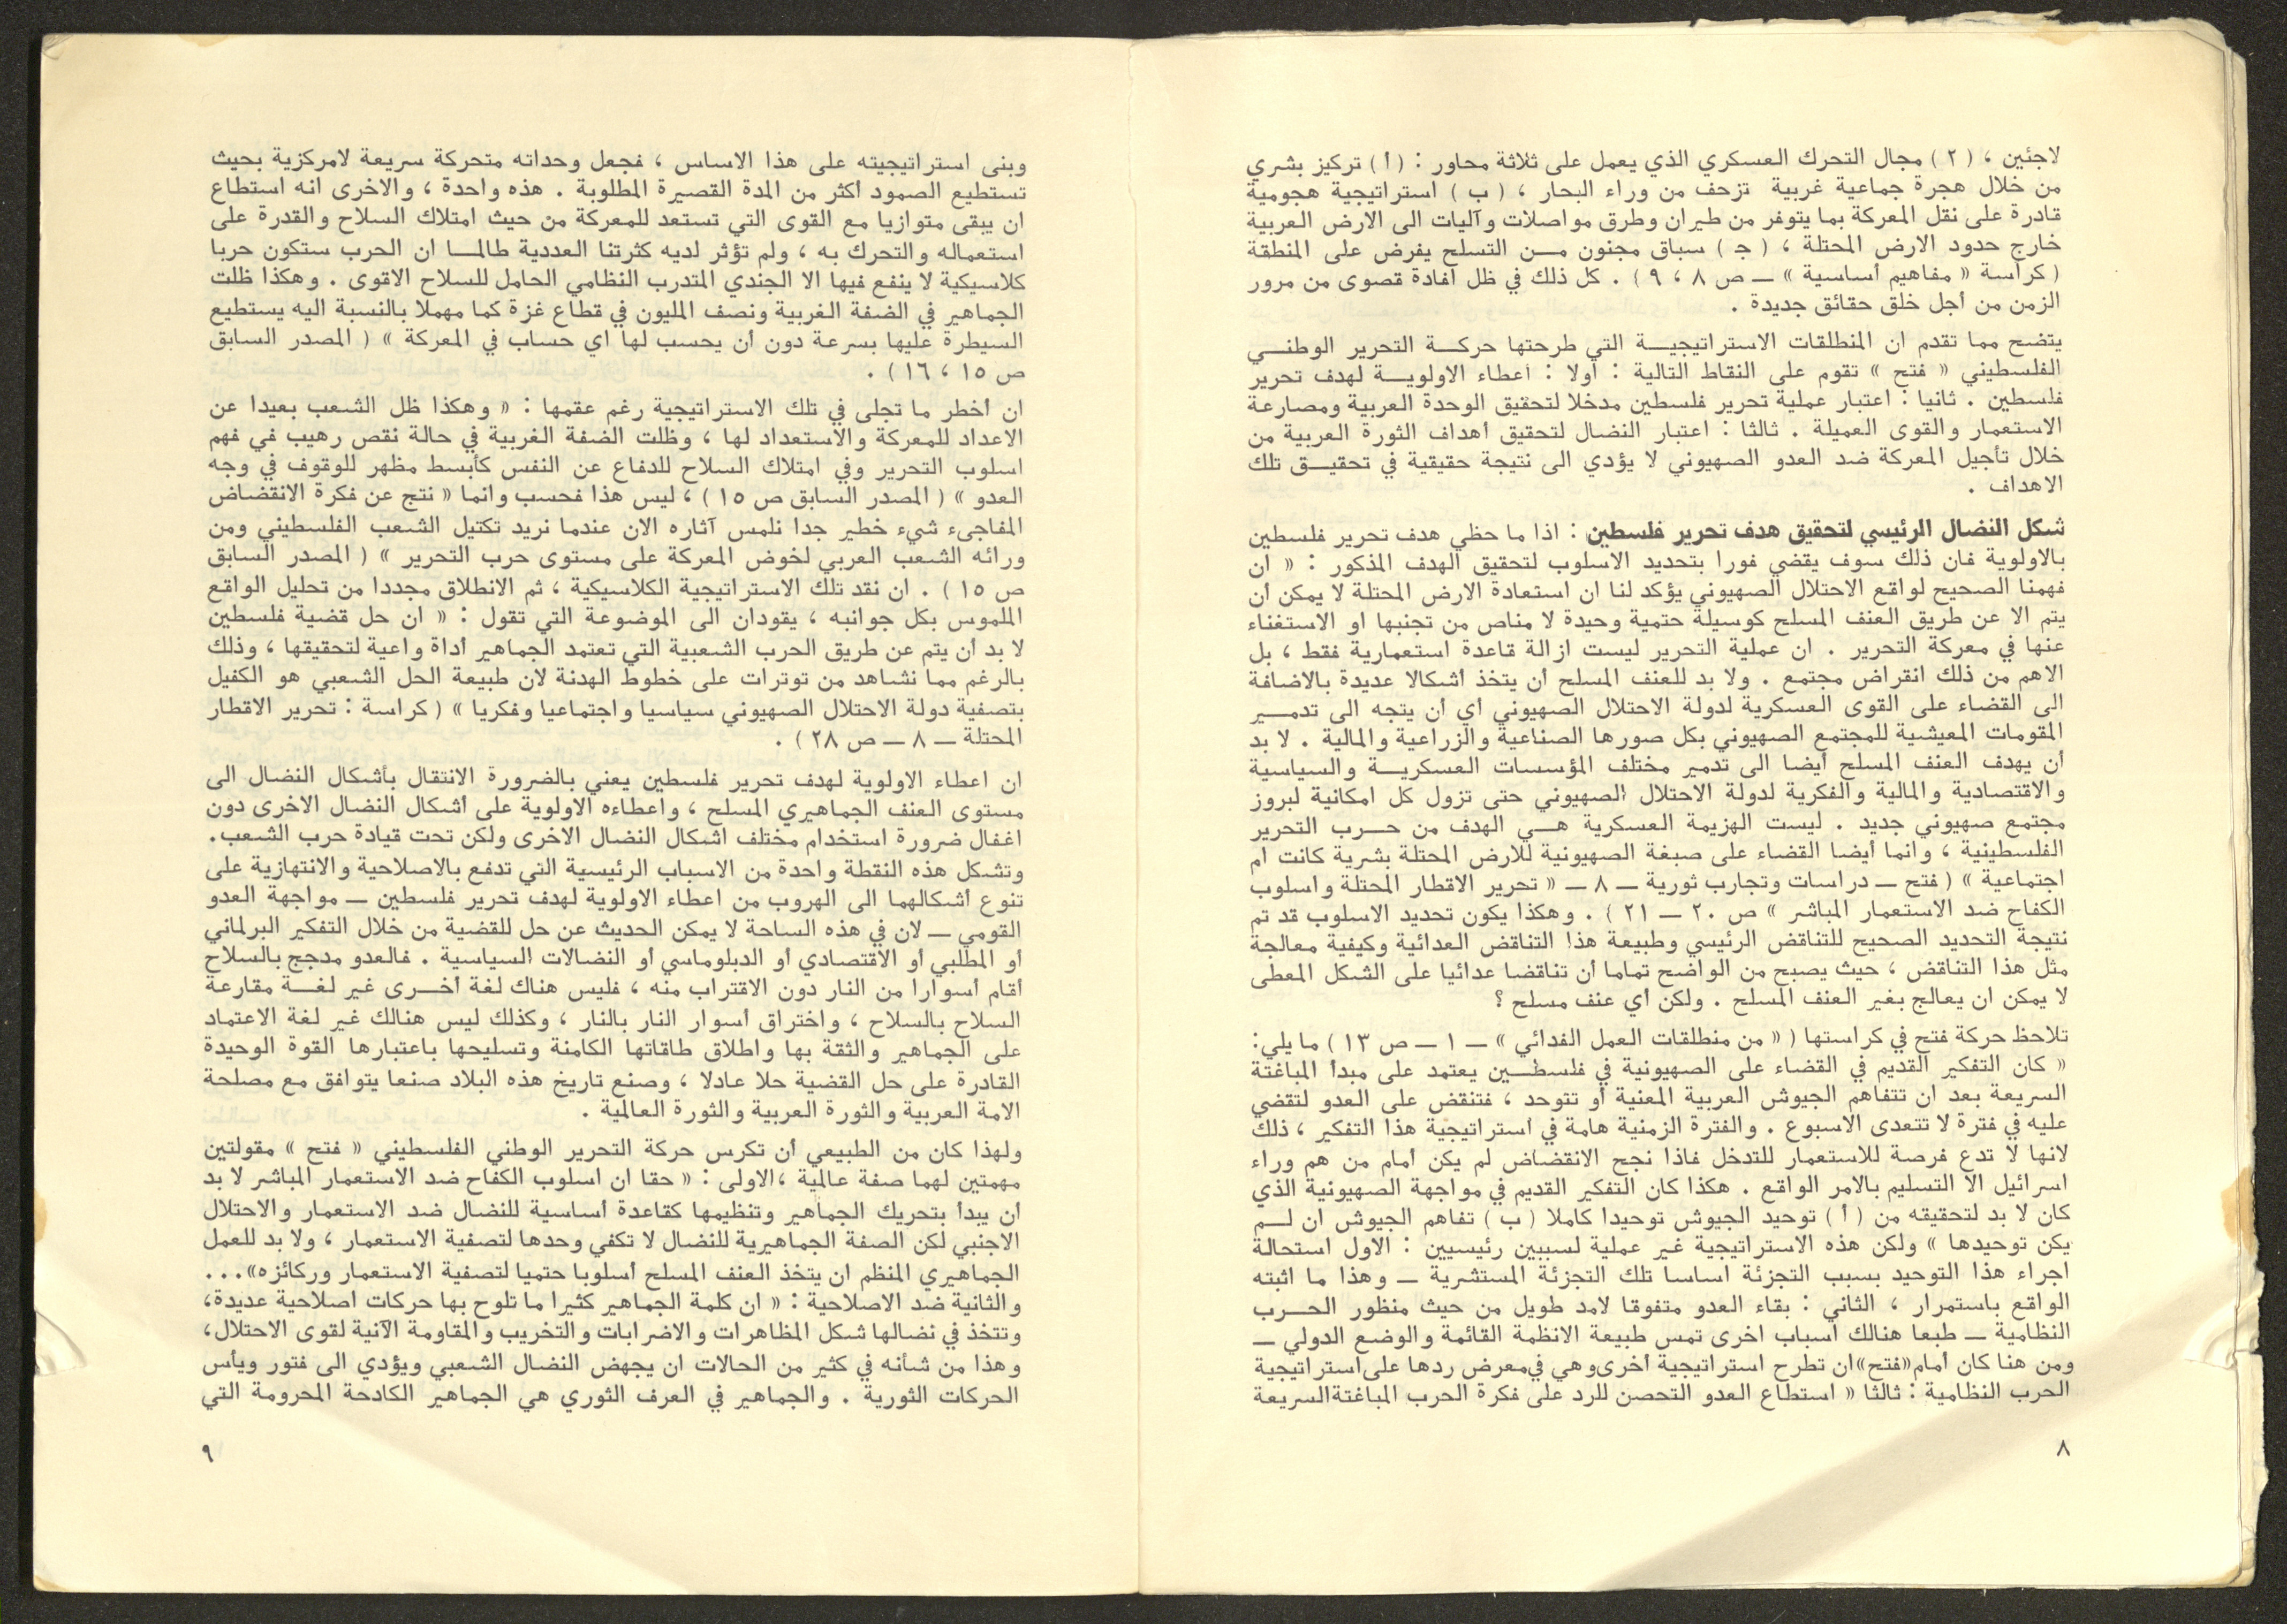 لاجئين ، ( ٢ ) مجال التحرك العسكري الذي يعمل على ثلاثة محاور : ( أ ) تركيز بشري
من خلال هجرة جماعية غربية تزحف من وراء البحار ، ( ب ) استراتيجية هجومية
قادرة على نقل المعركة بما يتوفر من طيران وطرق مواصلات وآليات الى الارض العربية
خارج حدود الارض المحتلة ، ( ج ) سباق مجنون مــن التسلح يفرض على المنطقة
( كراسة « مفاهيم أساسية » ــ ص ٨ ، ٩ ) . كل ذلك في ظل افادة قصوى من مرور
الزمن من أجل خلق حقائق جديدة .
يتضح مما تقدم ان المنطلقات الاستراتيجيــة التي طرحتها حركــة التحرير الوطنــي
الفلسطيني « فتح » تقوم على النقاط التالية : اولا : اعطاء الاولويــة لهدف تحرير
فلسطين . ثانيا : اعتبار عملية تحرير فلسطين مدخلا لتحقيق الوحدة العربية ومصارعة
الاستعمار والقوى العميلة . ثالثا : اعتبار النضال لتحقيق أهداف الثورة العربية من
خلال تأجيل المعركة ضد العدو الصهيوني لا يؤدي الى نتيجة حقيقية في تحقيــق تلك
الاهداف .
شكل النضال الرئيسي لتحقيق هدف تحرير فلسطين : اذا ما حظي هدف تحرير فلسطين
بالاولوية فان ذلك سوف يقضي فورا بتحديد الاسلوب لتحقيق الهدف المذكور : « ان
فهمنا الصحيح لواقع الاحتلال الصهيوني يؤكد لنا ان استعادة الارض المحتلة لا يمكن أن
يتم الا عن طريق العنف المسلح كوسيلة حتمية وحيدة لا مناص من تجنبها او الاستغناء
عنها في معركة التحرير . ان عملية التحرير ليست ازالة قاعدة استعمارية فقط ، بل
الاهم من ذلك انقراض مجتمع . ولا بد للعنف المسلح أن يتخذ أشكالا عديدة بالاضافة
الى القضاء على القوى العسكرية لدولة الاحتلال الصهيوني أي أن يتجه الى تدمــير
المقومات المعيشية للمجتمع الصهيوني بكل صورها الصناعية والزراعية والمالية . لا بد
أن يهدف العنف المسلح أيضا الى تدمير مختلف المؤسسات العسكريــة والسياسية
والاقتصادية والمالية والفكرية لدولة الاحتلال الصهيوني حتى تزول كل امكانية لبروز
مجتمع صهيوني جديد . ليست الهزيمة العسكرية هــي الهدف من حــرب التحرير
الفلسطينية ، وانما أيضا القضاء على صبغة الصهيونية للارض المحتلة بشرية كانت ام
اجتماعية » ( فتح ــ دراسات وتجارب ثورية ــ ٨ ــ « تحرير الاقطار المحتلة واسلوب
الكفاح ضد الاستعمار المباشر » ص ٢٠ ــ ٢١ ) . وهكذا يكون تحديد الاسلوب قد تم
نتيجة التحديد الصحيح للتناقض الرئيسي وطبيعة هذا التناقض العدائية وكيفية معالجة
مثل هذا التناقض ، حيث يصبح من الواضح تماما أن تناقضا عدائيا على الشكل المعطى
لا يمكن ان يعالج بغير العنف المسلح . ولكن أي عنف مسلح ؟
تلاحظ حركة فتح في كراستها ( « من منطلقات العمل الفدائي » ــ ١ ــ ص ١٣ ) ما يلي:
« كان التفكير القديم في القضاء على الصهيونية في فلسطــين يعتمد على مبدأ المباغتة
السريعة بعد ان تتفاهم الجيوش العربية المعنية أو تتوحد ، فتنقض على العدو لتقضي
عليه في فترة لا تتعدى الاسبوع . والفترة الزمنية هامة في استراتيجية هذا التفكير ، ذلك
لانها لا تدع فرصة للاستعمار للتدخل فاذا نجح الانقضاض لم يكن أمام من هم وراء
اسرائيل الا التسليم بالامر الواقع . هكذا كان التفكير القديم في مواجهة الصهيونية الذي
كان لا بد لتحقيقه من ( أ ) توحيد الجيوش توحيدا كاملا ( ب ) تفاهم الجيوش ان لــم
يكن توحيدها » ولكن هذه الاستراتيجية غير عملية لسببين رئيسيين : الاول استحالة
اجراء هذا التوحيد بسبب التجزئة اساسا تلك التجزئة المستشرية ــ وهذا ما اثبته
الواقع باستمرار ، الثاني : بقاء العدو متفوقا لامد طويل من حيث منظور الحــرب
النظامية ــ طبعا هنالك أسباب اخرى تمس طبيعة الانظمة القائمة والوضع الدولي ــ
ومن هنا كان أمام «فتح» ان تطرح استراتيجية أخرى وهي في معرض ردها على استراتيجية
الحرب النظامية : ثالثا « استطاع العدو التحصن للرد على فكرة الحرب المباغتة السريعة
٨
وبنى استراتيجيته على هذا الاساس ، فجعل وحداته متحركة سريعة لامركزية بحيث
تستطيع الصمود أكثر من المدة القصيرة المطلوبة . هذه واحدة ، والاخرى انه استطاع
ان يبقى متوازيا مع القوى التي تستعد للمعركة من حيث امتلاك السلاح والقدرة على
استعماله والتحرك به ، ولم تؤثر لديه كثرتنا العددية طالمــا ان الحرب ستكون حربا
كلاسيكية لا ينفع فيها الا الجندي المتدرب النظامي الحامل للسلاح الاقوى . وهكذا ظلت
الجماهير في الضفة الغربية ونصف المليون في قطاع غزة كما مهملا بالنسبة اليه يستطيع
السيطرة عليها بسرعة دون أن يحسب لها اي حساب في المعركة » ( المصدر السابق
ص ١٥ ، ١٦ ) .
ان أخطر ما تجلى في تلك الاستراتيجية رغم عقمها : « وهكذا ظل الشعب بعيدا عن
الاعداد للمعركة والاستعداد لها ، وظلت الضفة الغربية في حالة نقص رهيب في فهم
اسلوب التحرير وفي امتلاك السلاح للدفاع عن النفس كأبسط مظهر للوقوف في وجه
العدو » ( المصدر السابق ص ١٥ ) ، ليس هذا فحسب وانما « نتج عن فكرة الانقضاض
المفاجىء شيء خطير جدا نلمس آثاره الان عندما نريد تكتيل الشعب الفلسطيني ومن
ورائه الشعب العربي لخوض المعركة على مستوى حرب التحرير » ( المصدر السابق
ص ١٥ ) . ان نقد تلك الاستراتيجية الكلاسيكية ، ثم الانطلاق مجددا من تحليل الواقع
الملموس بكل جوانبه ، يقودان الى الموضوعة التي تقول : « ان حل قضية فلسطين
لا بد أن يتم عن طريق الحرب الشعبية التي تعتمد الجماهير أداة واعية لتحقيقها ، وذلك
بالرغم مما نشاهد من توترات على خطوط الهدنة لان طبيعة الحل الشعبي هو الكفيل
بتصفية دولة الاحتلال الصهيوني سياسيا واجتماعيا وفكريا » ( كراسة : تحرير الاقطار
المحتلة ــ ٨ ــ ص ٢٨ ) .
ان اعطاء الاولوية لهدف تحرير فلسطين يعني بالضرورة الانتقال بأشكال النضال الى
مستوى العنف الجماهيري المسلح ، واعطاءه الاولوية على أشكال النضال الاخرى دون
اغفال ضرورة استخدام مختلف اشكال النضال الاخرى ولكن تحت قيادة حرب الشعب.
وتشكل هذه النقطة واحدة من الاسباب الرئيسية التي تدفع بالاصلاحية والانتهازية على
تنوع أشكالهما الى الهروب من اعطاء الاولوية لهدف تحرير فلسطين ــ مواجهة العدو
القومي ــ لان في هذه الساحة لا يمكن الحديث عن حل للقضية من خلال التفكير البرلماني
أو المطلبي أو الاقتصادي أو الدبلوماسي أو النضالات السياسية . فالعدو مدجج بالسلاح
أقام أسوارا من النار دون الاقتراب منه ، فليس هناك لغة أخــرى غير لغــة مقارعة
السلاح بالسلاح ، واختراق أسوار النار بالنار ، وكذلك ليس هنالك غير لغة الاعتماد
على الجماهير والثقة بها واطلاق طاقاتها الكامنة وتسليحها باعتبارها القوة الوحيدة
القادرة على حل القضية حلا عادلا ، وصنع تاريخ هذه البلاد صنعا يتوافق مع مصلحة
الامة العربية والثورة العربية والثورة العالمية .
ولهذا كان من الطبيعي أن تكرس حركة التحرير الوطني الفلسطيني « فتح » مقولتين
مهمتين لهما صفة عالمية ، الاولى : « حقا ان اسلوب الكفاح ضد الاستعمار المباشر لا بد
أن يبدأ بتحريك الجماهير وتنظيمها كقاعدة أساسية للنضال ضد الاستعمار والاحتلال
الاجنبي لكن الصفة الجماهيرية للنضال لا تكفي وحدها لتصفية الاستعمار ، ولا بد للعمل
الجماهيري المنظم ان يتخذ العنف المسلح أسلوبا حتميا لتصفية الاستعمار وركائزه»...
والثانية ضد الاصلاحية : « ان كلمة الجماهير كثيرا ما تلوح بها حركات اصلاحية عديدة،
وتتخذ في نضالها شكل المظاهرات والاضرابات والتخريب والمقاومة الآنية لقوى الاحتلال،
وهذا من شأنه في كثير من الحالات ان يجهض النضال الشعبي ويؤدي الى فتور ويأس
الحركات الثورية . والجماهير في العرف الثوري هي الجماهير الكادحة المحرومة التي
٩